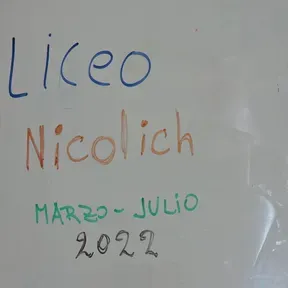 Liceo
Nicolich
MARZO - JULIO
2022